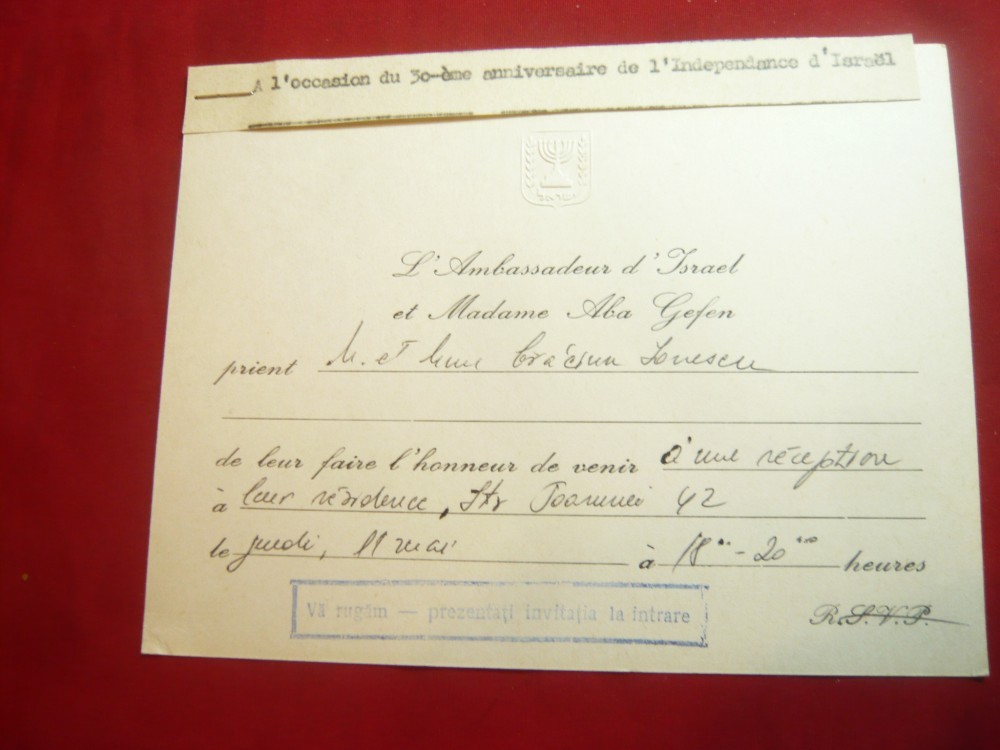 A l'occasion du 30-ème anniversaire de l'Independance d'Israël
ישראל
L'Ambassadeur d'Israel
et Madame Aba Gefen
prient M. et Mme Crăciun Ionescu
de leur faire l'honneur de venir à une réception
à leur résidence, Str 42
le jeudi, 11 mai à 18⁰⁰-20⁰⁰ heures
Vă rugăm — prezentați invitația la intrare
R.S.V.P.